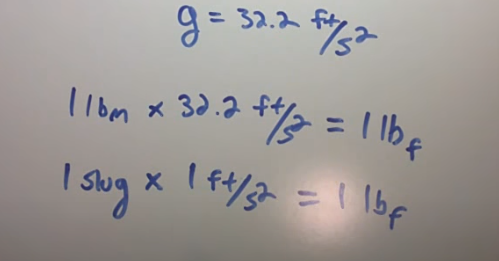 g = 32.2 ft/s²
1 lbm × 32.2 ft/s² = 1 lbf
1 slug × 1 ft/s² = 1 lbf